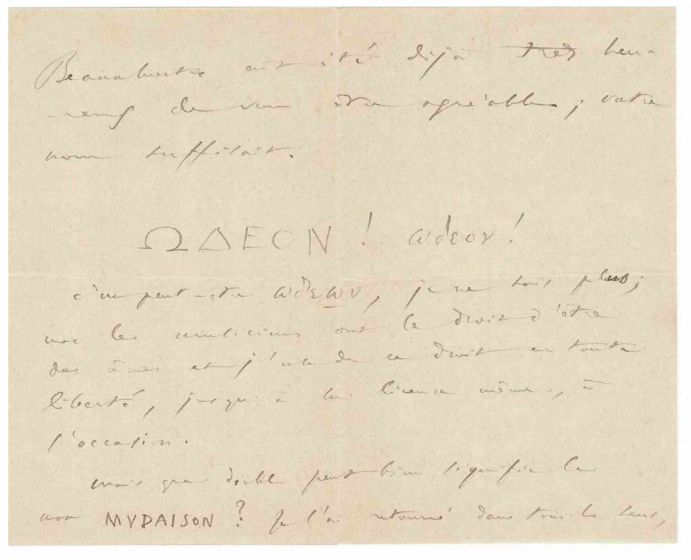 eut été déjà heu-
-reux de vous être agréable ; votre
nom suffisait.
ΩΔΕΟΝ ! ωδεον !
c'est peut-être ωδεων, je ne sais plus ;
mais les musiciens ont le droit d'être
des ânes et j'use de ce droit en toute
liberté, jusqu'à la licence même, à
l'occasion.
mais que diable peut bien signifier le
mot MYDAISON ? Je l'ai retourné dans tous les sens,